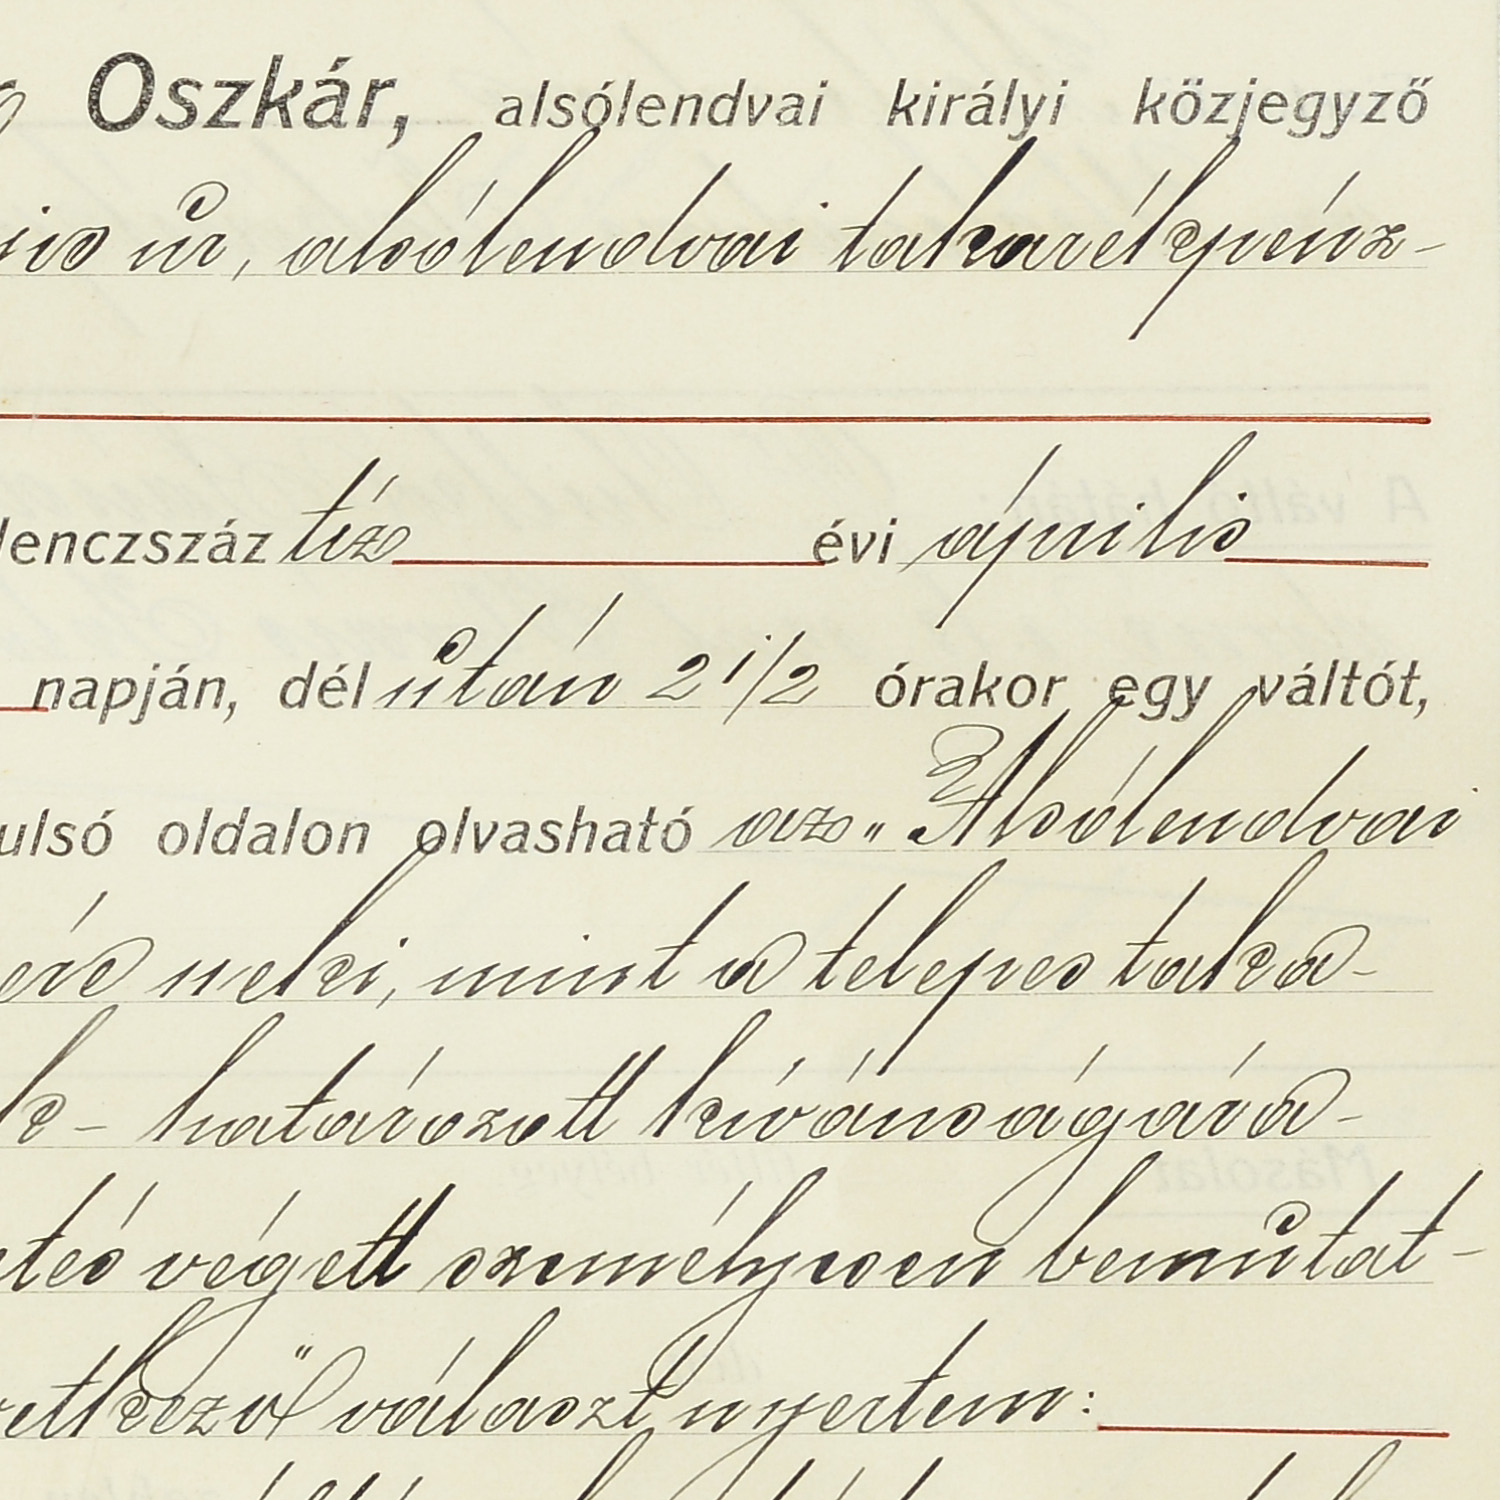 Oszkár, alsólendvai királyi közjegyző
úr, alsólendvai takarékpénz-
lenczszáz tíz évi április
napján, dél után 2 1/2 órakor egy váltót,
ulsó oldalon olvasható az „Alsólendvai
neki, mint a telepes taka-
határozott kívánságára-
végett személyesen bemutat-
választ nyertem: